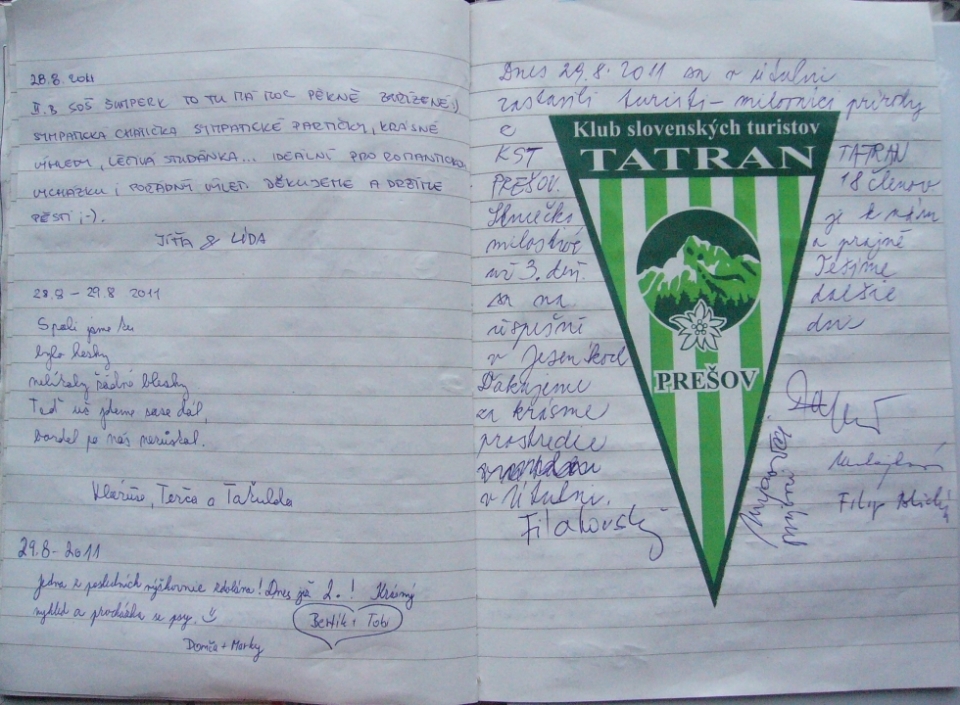 28.8. 2011
II.B SOŠ ŠUMPERK TO TU MÁ MOC PĚKNĚ ZAŘÍZENÉ :)
SYMPATICKÁ CHATIČKA SYMPATICKÉ PARTIČKY, KRÁSNÉ
VÝHLEDY, LÉČIVÁ STUDÁNKA... IDEÁLNÍ PRO ROMANTICKOU
VYCHÁZKU I POŘÁDNÝ VÝLET. DĚKUJEME A DRŽÍME
PĚSTI ;-).
JÍŤA & LÍDA
28.8 - 29.8 2011
Spali jsme tu
bylo hezky
nelítaly žádné blesky
Teď už jdeme zase dál,
bordel po nás nezůstal.
Klárka, Terča a Taťulda
29.8 - 2011
Jedna z posledních výškovnic zdolána! Dnes již 2.! Krásný
výhled a procházka se psy.
Bertík + Tobi
Domča + Marky
Dnes 29.8. 2011 sa v útulni
zastavili turisti - milovníci prírody
z
KST TATRAN
PREŠOV. 18 členov
Slniečko je k nám
milostivé a prajné
už 3. deň. Tešíme
sa na ďalšie
úspešné dni
v Jeseníkoch
Ďakujeme
za krásne
prostredie
v Útulni.
Filakovský
Filip
Klub slovenských turistov
TATRAN
PREŠOV